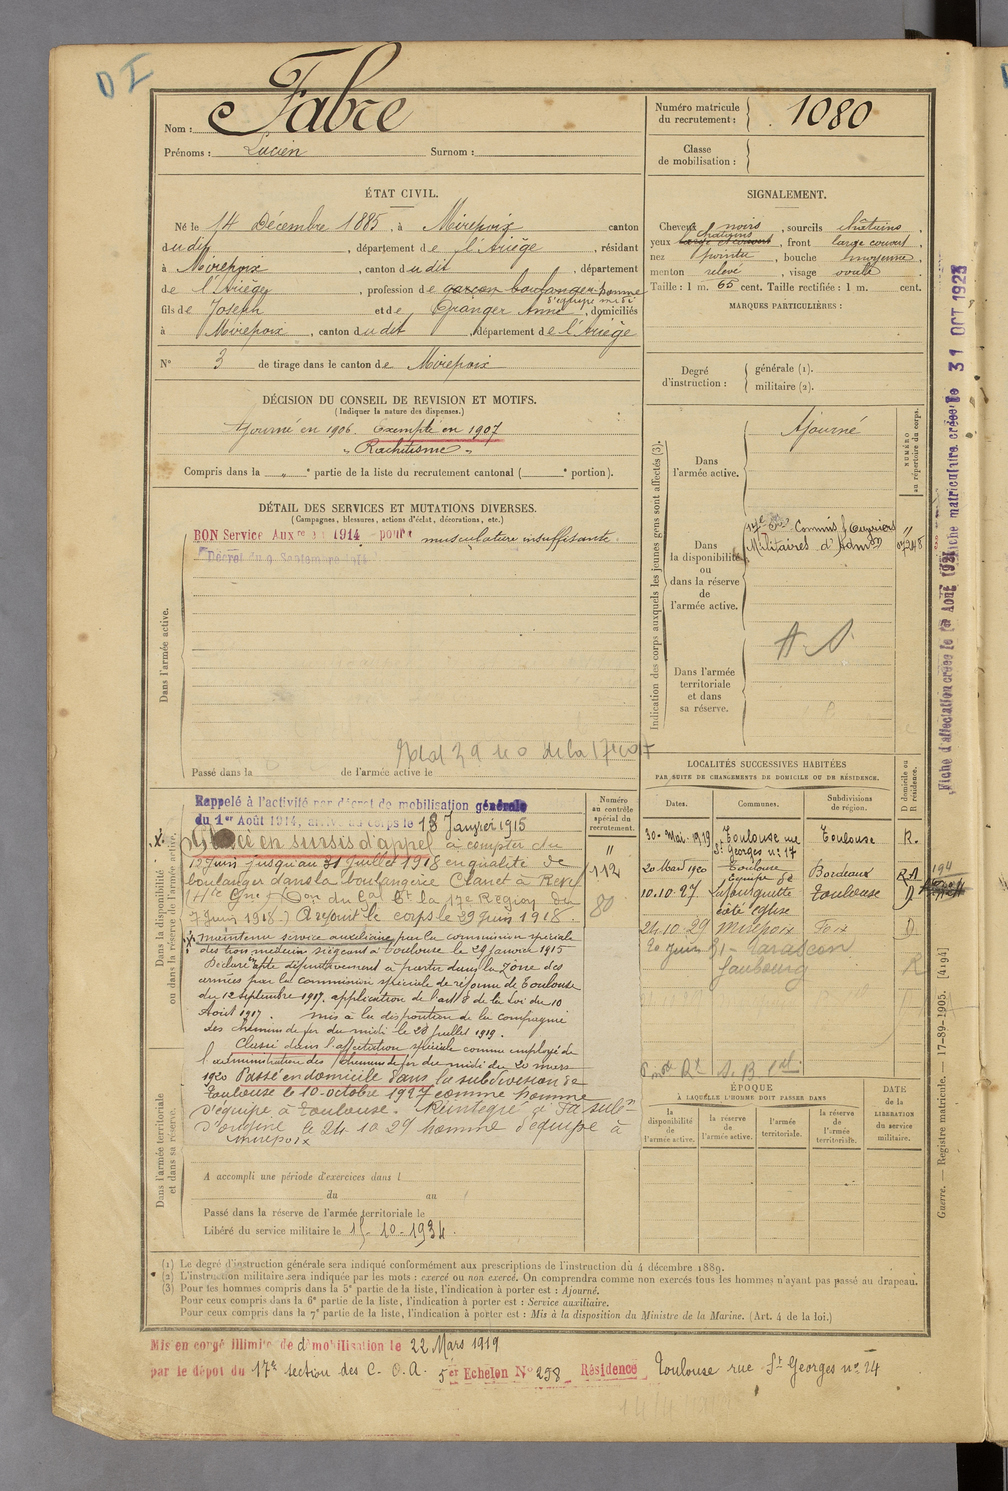 D I
Nom : Fabre
Prénoms : Lucien Surnom :
Numéro matricule
du recrutement : 1080
Classe
de mobilisation :
ÉTAT CIVIL.
Né le 14 Décembre 1885, à Mirepoix canton
du dit, département de l'Ariège, résidant
à Mirepoix, canton du dit, département
de l'Ariège, profession de garçon boulanger homme
d'équipe midi
fils de Joseph et de Granger Anne, domiciliés
à Mirepoix, canton du dit, département de l'Ariège
N° 3 de tirage dans le canton de Mirepoix
SIGNALEMENT.
Cheveux noirs, sourcils châtains,
yeux chatains, front large couvert,
nez pointu, bouche moyenne,
menton relevé, visage ovale
Taille : 1 m. 65 cent. Taille rectifiée : 1 m. cent.
MARQUES PARTICULIÈRES :
Degré
d'instruction :
générale (1).
militaire (2).
DÉCISION DU CONSEIL DE REVISION ET MOTIFS.
(Indiquer la nature des dispenses.)
Ajourné en 1906. Exempté en 1907
" Rachitisme "
Compris dans la " e partie de la liste du recrutement cantonal ( e portion).
DÉTAIL DES SERVICES ET MUTATIONS DIVERSES.
(Campagnes, blessures, actions d'éclat, décorations, etc.)
BON Service Auxre en 1914 pour musculature insuffisante.
Décret du 9 Septembre 1914
Dans l'armée active.
Passé dans la de l'armée active le
Indication des corps auxquels les jeunes gens sont affectés (3).
Dans
l'armée active.
Ajourné
NUMÉRO
au répertoire du corps.
Dans
la disponibilité
ou
dans la réserve
de
l'armée active.
17e Son Commis & Ouvriers
Militaires d'Admon
"
07248
Dans l'armée
territoriale
et dans
sa réserve.
Fiche d'affectation créée le 1er Août 1921
Fiche matriculaire créée le 31 OCT 1928
Dans la disponibilité
ou dans la réserve de l'armée active.
Rappelé à l'activité par décret de mobilisation générale
du 1er Août 1914, arrivé au corps le 18 Janvier 1915
Placé en sursis d'appel à compter du
15 Juin jusqu'au 31 Juillet 1918 en qualité de
boulanger dans la boulangerie Clanet à Revel
(Hte Gne) Don du Gal Ct la 17e Région du
7 Juin 1918.) A rejoint le corps le 29 Juin 1918.
maintenu service auxiliaire par la commission speciale
des trois medecin siégeant à Toulouse le 29 Janvier 1915
Déclaré apte définitivement à partir dans la zone des
armées par la commission spéciale de réforme de Toulouse
du 12 septembre 1917. application de l'art 3 de la loi du 10
Août 1917. mis à la disposition de la compagnie
des chemins de fer du midi le 28 Juillet 1919.
Classé dans l'affectation spéciale comme employé de
l'administration des chemins de fer du midi du 20 mars
1920 Passé en domicile dans la subdivision de
Toulouse le 10 octobre 1927 comme homme
d'équipe à Toulouse. Réintégré à sa subon
d'origine le 24 10 29 homme d'équipe à
Mirepoix
Numéro
au contrôle
spécial du
recrutement.
"
112
80
Dans l'armée territoriale
et dans sa réserve.
A accompli une période d'exercices dans l
du au
Passé dans la réserve de l'armée territoriale le
Libéré du service militaire le 15-10-1934.
LOCALITÉS SUCCESSIVES HABITÉES
PAR SUITE DE CHANGEMENTS DE DOMICILE OU DE RÉSIDENCE.
D domicile ou
R résidence.
Dates. Communes. Subdivisions
de région.
30. Mai. 1919 Toulouse rue
St Georges n° 17 Toulouse R.
20 Mars 1920 Toulouse Bordeaux
10.10.27 Lafourguette
côté église Toulouse
24.10.29 Mirepoix Foix D.
20 Juin 31 Tarascon
faubourg R
ÉPOQUE
À LAQUELLE L'HOMME DOIT PASSER DANS
la
disponibilité
de
l'armée active.
la réserve
de
l'armée active.
l'armée
territoriale.
la réserve
de
l'armée
territoriale.
DATE
de la
LIBÉRATION
du service
militaire.
Guerre. — Registre matricule. — 17-89-1905. [4194]
(1) Le degré d'instruction générale sera indiqué conformément aux prescriptions de l'instruction du 4 décembre 1889.
(2) L'instruction militaire sera indiquée par les mots : exercé ou non exercé. On comprendra comme non exercés tous les hommes n'ayant pas passé au drapeau.
(3) Pour les hommes compris dans la 5e partie de la liste, l'indication à porter est : Ajourné.
Pour ceux compris dans la 6e partie de la liste, l'indication à porter est : Service auxiliaire.
Pour ceux compris dans la 7e partie de la liste, l'indication à porter est : Mis à la disposition du Ministre de la Marine. (Art. 4 de la loi.)
Mis en congé illimité de démobilisation le 22 Mars 1919
par le dépôt du 17e section des C. O. A. 5er Echelon N° 258 Résidence Toulouse rue St Georges n° 24